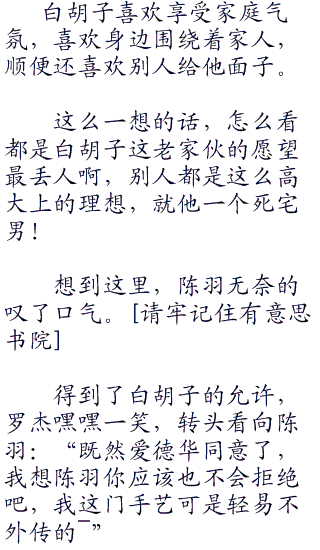 白胡子喜欢享受家庭气
氛，喜欢身边围绕着家人，
顺便还喜欢别人给他面子。
这么一想的话，怎么看
都是白胡子这老家伙的愿望
最丢人啊，别人都是这么高
大上的理想，就他一个死宅
男！
想到这里，陈羽无奈的
叹了口气。[请牢记住有意思
书院]
得到了白胡子的允许，
罗杰嘿嘿一笑，转头看向陈
羽：“既然爱德华同意了，
我想陈羽你应该也不会拒绝
吧，我这门手艺可是轻易不
外传的¯”